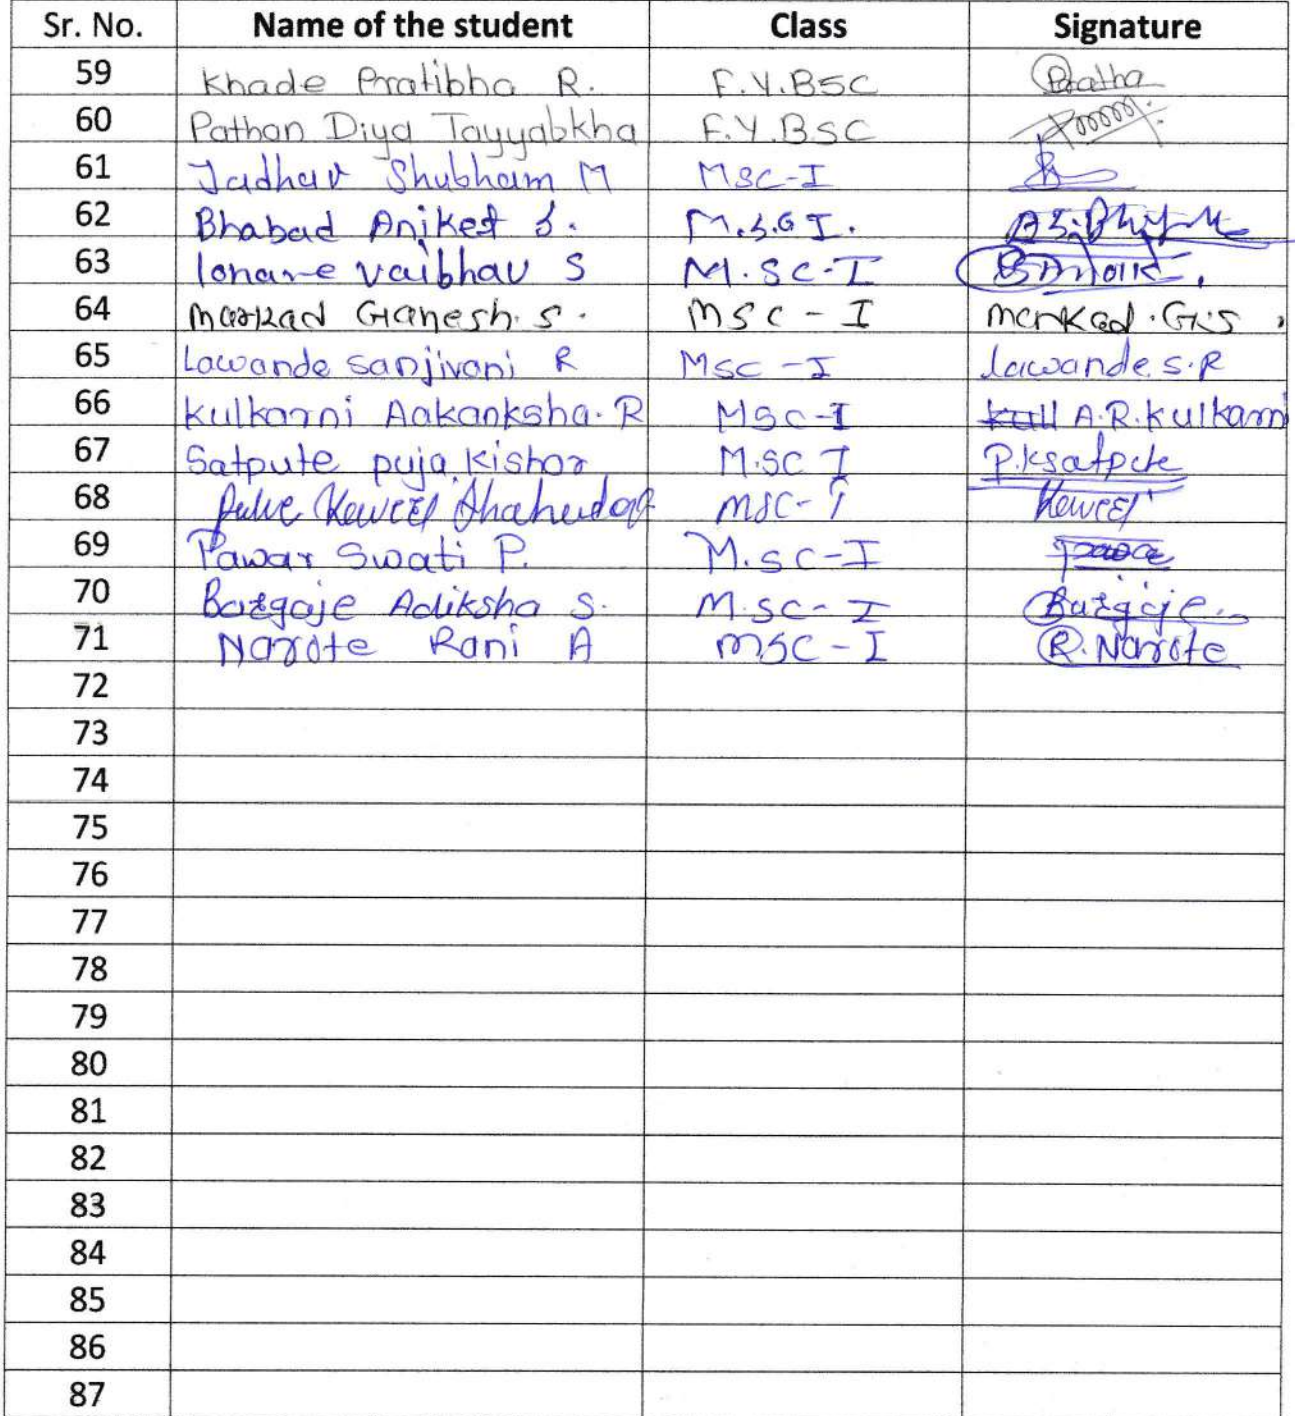 Sr. No. Name of the student Class Signature
59 Khade Pratibha R. F.Y.BSC Pratha
60 Pathan Diya Tayyabkha F.Y.BSC
61 Jadhav Shubham M MSC-I
62 Bhabad Aniket S.
63 lonare vaibhav S M.SC-I
64 Markad Ganesh.S. MSC-I Markad.G.S
65 Lawande sanjivani R MSC-I lawande S.R
66 Kulkarni Aakanksha.R MSC-I A.R.Kulkarni
67 Satpute puja Kishor M.SC I P.Ksatpute
68 MSC-I
69 Pawar Swati P. M.SC-I
70 Bargaje Adiksha S. M.SC-I Bargaje
71 Narote Rani A MSC-I R.Narote
72
73
74
75
76
77
78
79
80
81
82
83
84
85
86
87